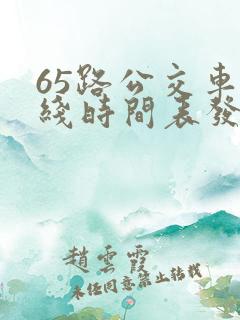 65路公交車
綫時間表發
趙雲霞
未任同意禁止转载